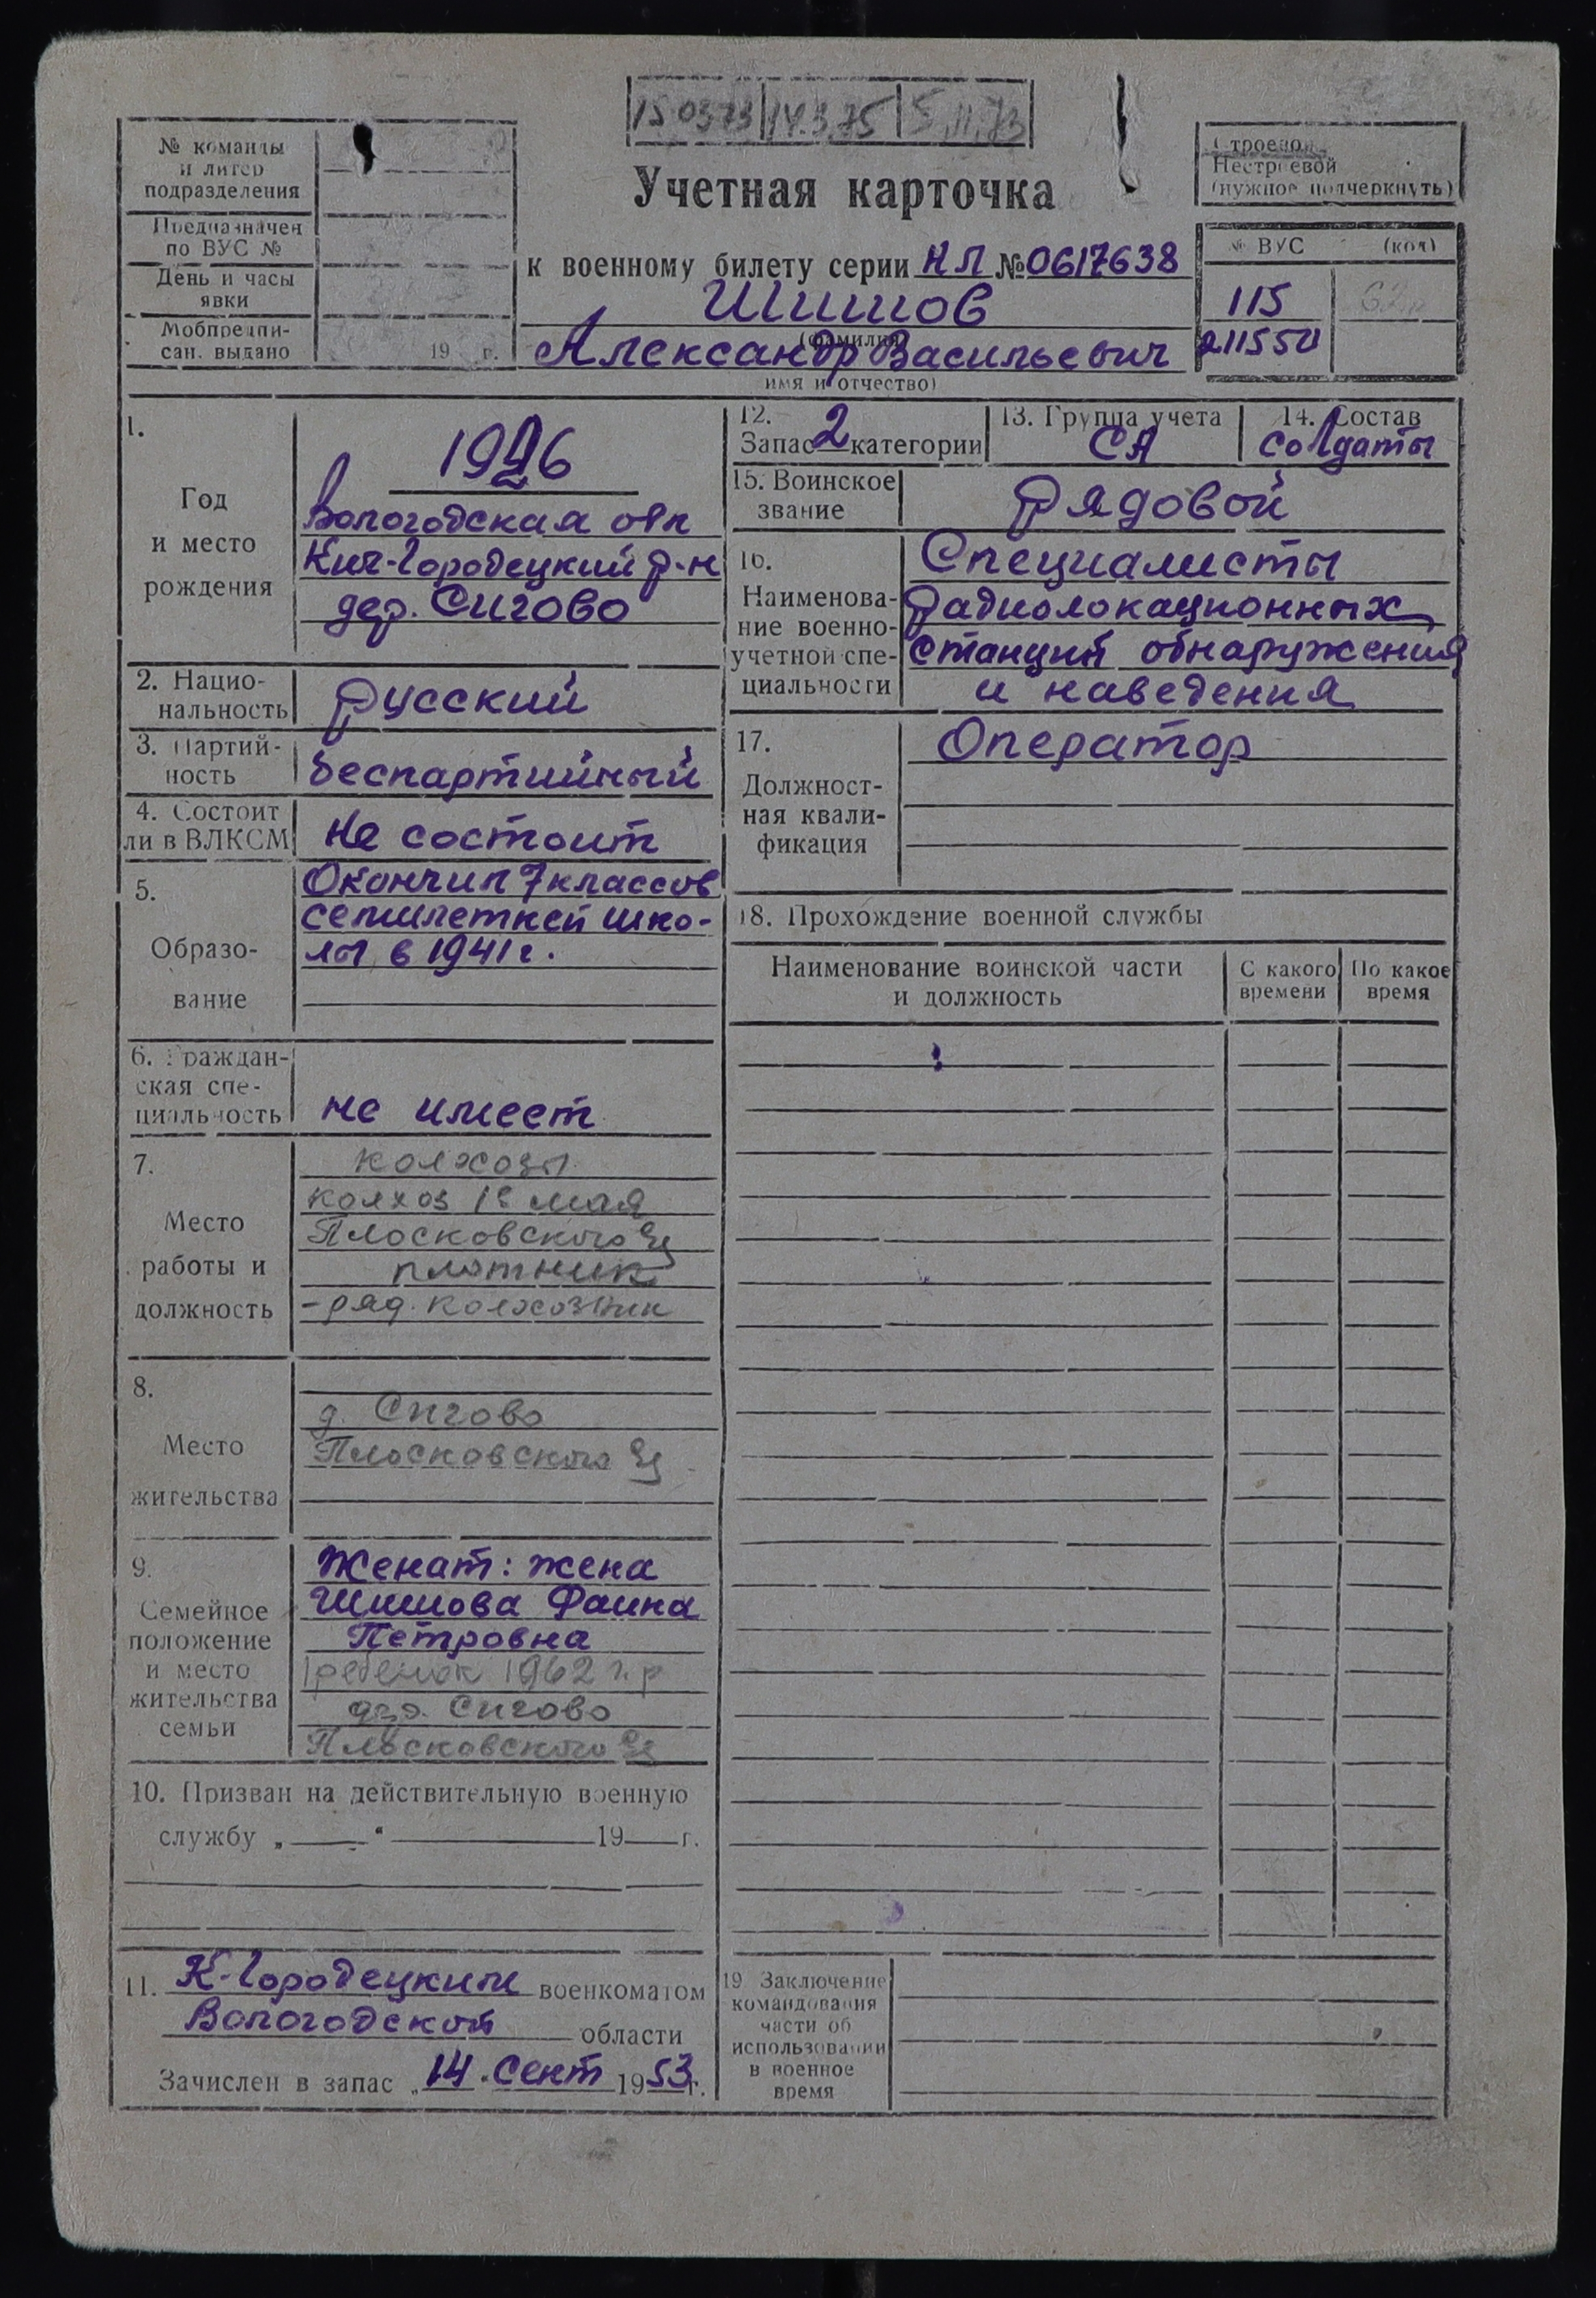 15 03 73 14.3.75 5.11.73
№ команды
и литер
подразделения
Предназначен
по ВУС №
День и часы
явки
Мобпредпи-
сан. выдано 19 г.
Учетная карточка
к военному билету серии НЛ № 0617638
Шишов
(фамилия)
Александр Васильевич
имя и отчество)
Строевой
Нестроевой
(нужное подчеркнуть)
№ ВУС (код)
115
211550
1.
Год
и место
рождения
1926
Вологодская обл
Кич-Городецкий р-н
дер. Сигово
2. Нацио-
нальность
русский
3. Партий-
ность
беспартийный
4. Состоит
ли в ВЛКСМ
не состоит
5.
Образо-
вание
Окончил 7 классов
семилетней шко-
лы в 1941 г.
6. Граждан-
ская спе-
циальность
не имеет
7.
Место
работы и
должность
колхозы
колхоз 1е мая
Плосковского
плотник
- ряд. колхозник
8.
Место
жительства
д. Сигово
Плосковского
9.
Семейное
положение
и место
жительства
семьи
Женат: жена
Шишова Фаина
Петровна
1 ребенок 1962 г.р
дер. Сигово
Плосковского
10. Призван на действительную военную
службу „ “ 19 г.
11. К-Городецким военкоматом
Вологодской области
Зачислен в запас „14“ сент 1953г.
12.
Запас 2 категории
13. Группа учета
СА
14. Состав
солдаты
15. Воинское
звание
рядовой
16.
Наименова-
ние военно-
учетной спе-
циальности
Специалисты
радиолокационных
станций обнаружения
и наведения
17.
Должност-
ная квали-
фикация
Оператор
18. Прохождение военной службы
Наименование воинской части
и должность
С какого
времени
По какое
время
19 Заключение
командования
части об
использовании
в военное
время